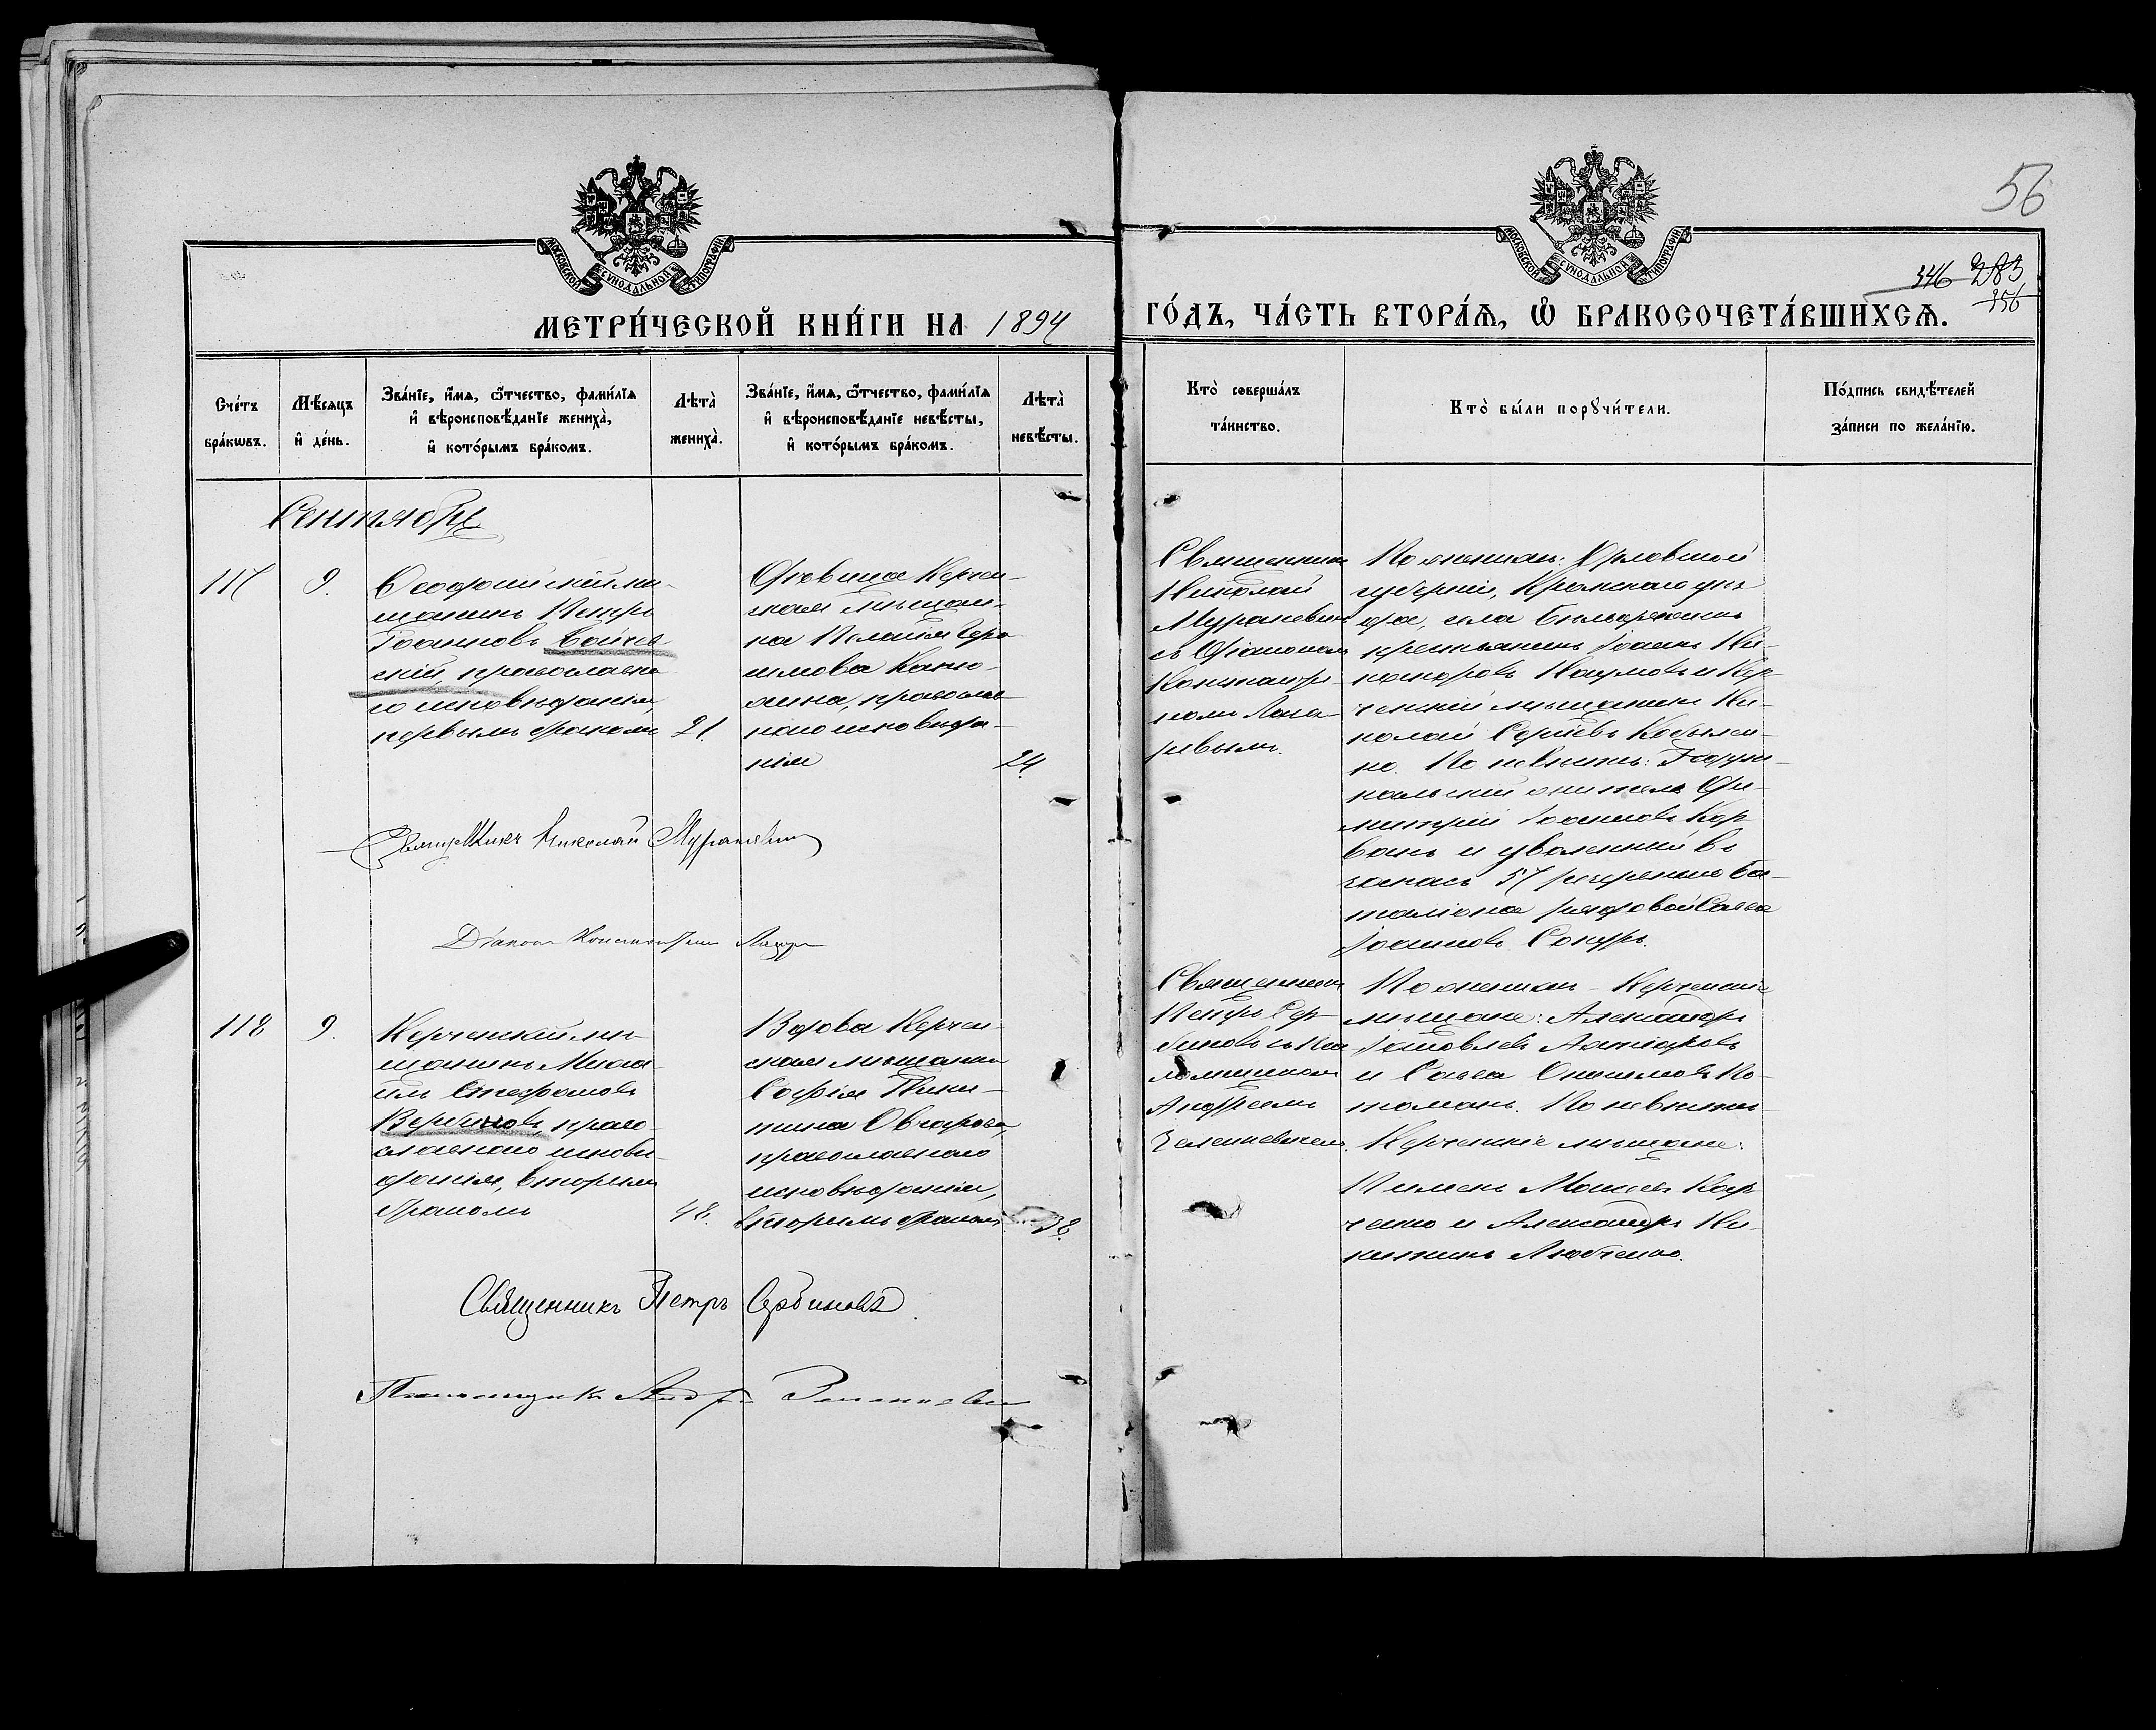 56
346 283
356
МОСКОВСКОЙ СѴНОДАЛЬНОЙ ТИПОГРАФІИ
МОСКОВСКОЙ СѴНОДАЛЬНОЙ ТИПОГРАФІИ
МЕТРИ́ЧЕСКОЙ КНИ́ГИ НА 1894
ГО́ДЪ, ЧА́СТЬ ВТОРА́Ѧ, Ѽ БРАКОСОЧЕТА́ВШИХСѦ.
Сче́тъ
бра́кѡвъ.
Мѣсѧцъ
и҆ де́нь.
Зва́нїе, и҆́мѧ, ѻ҆́тчество, фами́лїѧ
и҆ вѣроисповѣ́данїе жениха̀,
и҆ кото́рымъ бра́комъ.
Лѣта̀
жениха̀.
Зва́нїе, и҆́мѧ, ѻ҆́тчество, фами́лїѧ
и҆ вѣроисповѣ́данїе невѣ́сты,
и҆ кото́рымъ бра́комъ.
Лѣта̀
невѣ́сты.
Кто̀ соверша́лъ
та́инство.
Кто̀ бы́ли порꙋчи́тели.
По́дпись свидѣ́телей
за́писи по жела́нїю.
Сентябрь
117
9.
Ѳеодосійскій мѣ-
щанинъ Петръ
Іоанновъ Войче
скій, православна
го исповѣданія,
первымъ бракомъ
21.
Дѣвица Керчен-
ская мѣщан-
ка Пелагія Гера
симова
православ
наго исповѣда-
нія
24
Священникъ
Николай
Мураневичъ
съ Діакономъ
Константи-
номъ Лаза
ревымъ.
По женихѣ: Орловской
губерніи, Кромскаго уѣз
да, села
крестьянинъ Іоаннъ Ни-
каноровъ Наумовъ и Кер
ченскій мѣщанинъ Ни-
колай Сергѣевъ
По невѣстѣ:
Ди-
митрій Іоанновъ
и уволенный въ
запасъ 57 резервнаго ба-
таліона рядовой Савва
Іоанновъ
Священникъ Николай Мураневичъ
Діаконъ Константинъ Лазар
118
9.
Керченскій мѣ-
щанинъ Миха-
илъ Стефановъ
Вербиновъ, право
славнаго исповѣ-
данія, вторымъ
бракомъ
48.
Вдова Керчен-
ская мѣщанка
Софія Ники-
тина Овчарова,
православнаго
исповѣданія,
вторымъ бракомъ
38.
Священникъ
Петръ Сер-
биновъ съ Пса
ломщикомъ
Андреемъ
Зелинкевичемъ.
По женихѣ - Керченскіе
мѣщане: Александръ
Іаковлевъ
и Савва Онисимовъ Ко-
томанъ. По невѣстѣ -
Керченскіе мѣщане:
Пименъ Моисеевъ Хар
ченко и Александръ Ни-
китинъ Любченко.
Священникъ Петръ Сербиновъ
Псаломщикъ Андр.